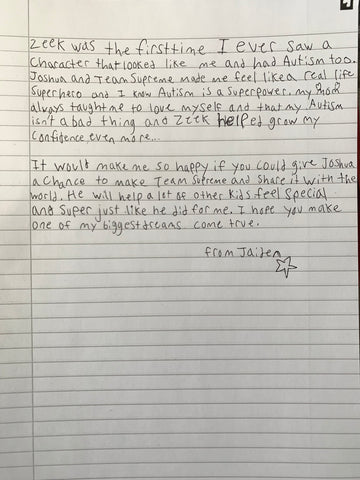 Zeek was the firsttime I ever saw a
Character that looked like me and had Autism too.
Joshua and Team Supreme made me feel like a real life
Superhero and I know Autism is a Superpower. my Dad
always taught me to love myself and that my Autism
isn't a bad thing and Zeek helped grow my
Confidence even more...
It would make me so happy if you could give Joshua
a Chance to make Team Supreme and Share it with the
world. He will help a lot of other Kids feel Special
and Super just like he did for me. I hope you make
one of my biggest dreams come true.
from Jaiden